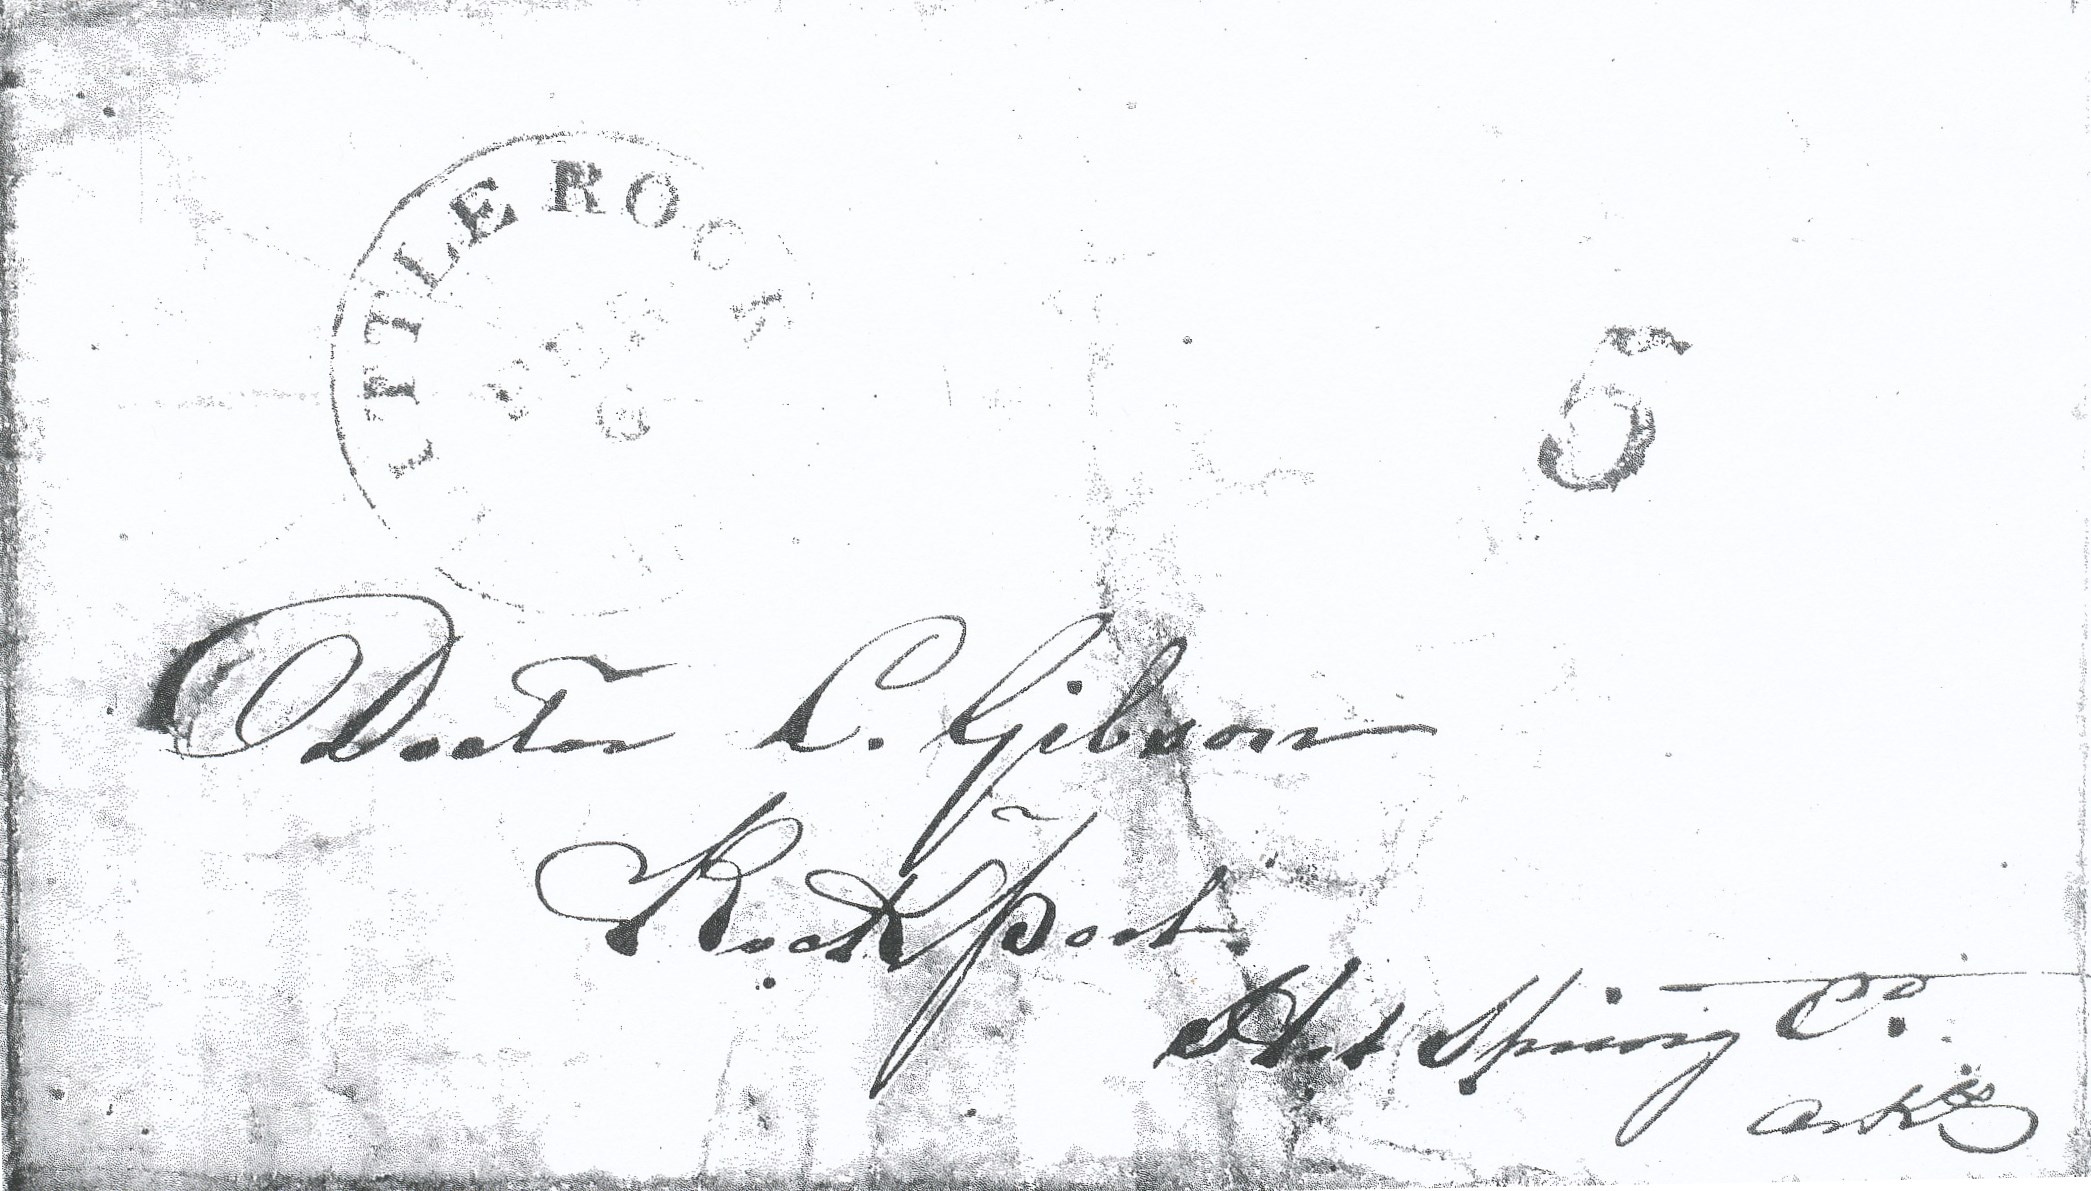 LITTLE ROCK
5
Doctor L. Gibson
Rockport
Hot Spring Co.
Arks